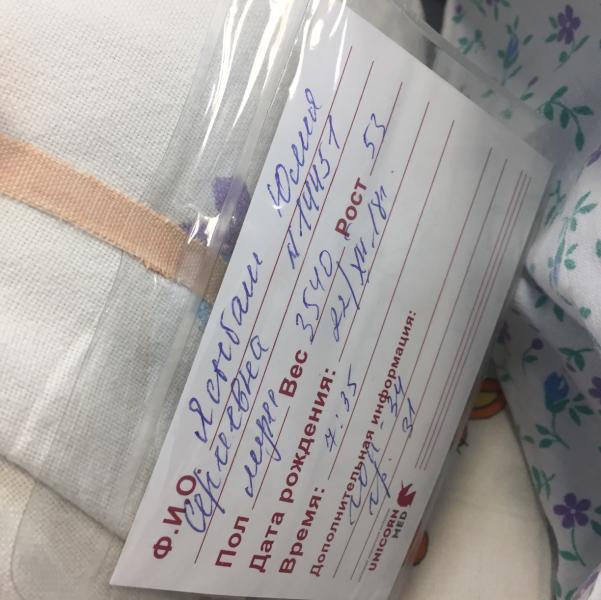 Ф.И.О. Ястебаш Юлия
Сергеевна N 14451
Пол муж Вес 3540 Рост 53
Дата рождения: 22/XII-18г.
Время: 7:35
Дополнительная информация:
гол - 34
гр. 31
UNICORN
MED